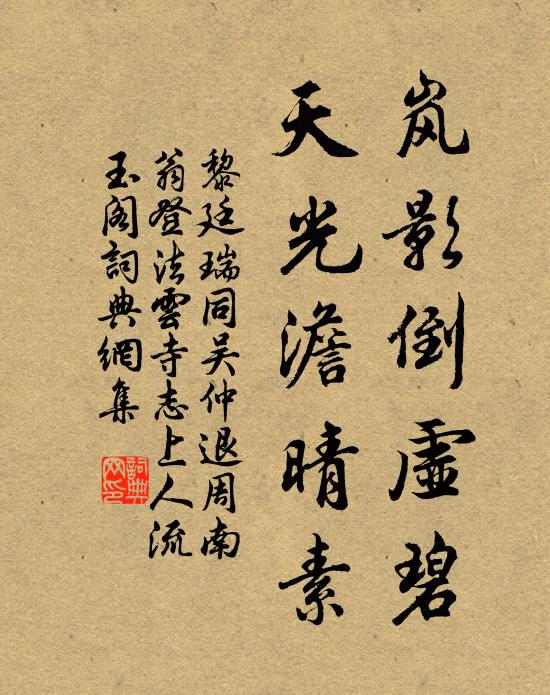 岚影倒虚碧
天光澹晴素
黎廷瑞同吴仲退周南
翁登法雲寺志上人流
玉阁詞典網集
詞典
网印